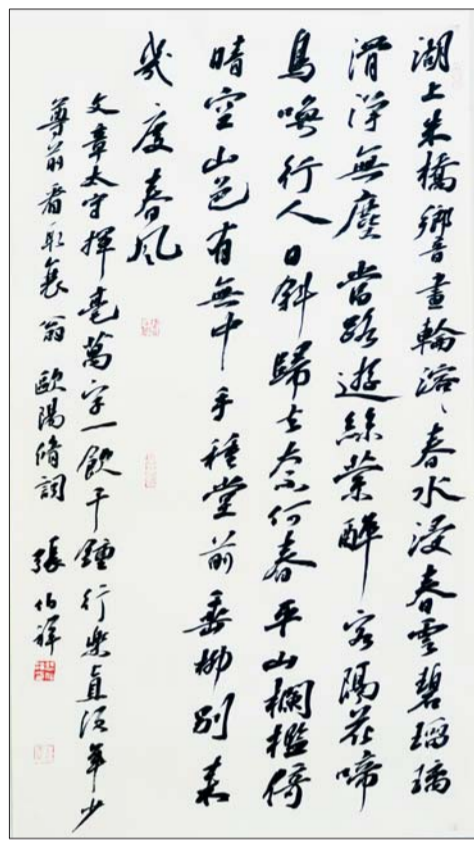 湖上朱橋響畫輪溶々春水浸春雲碧瑠璃
滑淨無塵當路遊絲縈醉客隔花啼
鳥喚行人日斜歸去奈何春平山欄檻倚
晴空山色有無中手種堂前垂柳別來
幾度春風
文章太守揮毫萬字一飲千鍾行樂直須年少
尊前看取衰翁 歐陽脩詞 張伯祥